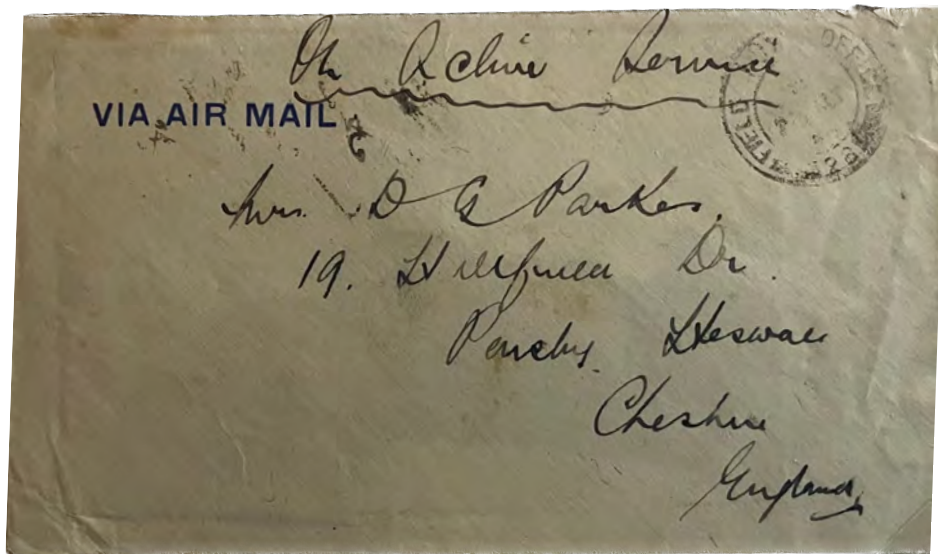 On Active Service
VIA AIR MAIL
FIELD
Mrs. D G Parkes.
19. Dr.
Pensby. Heswall
Cheshire
England.